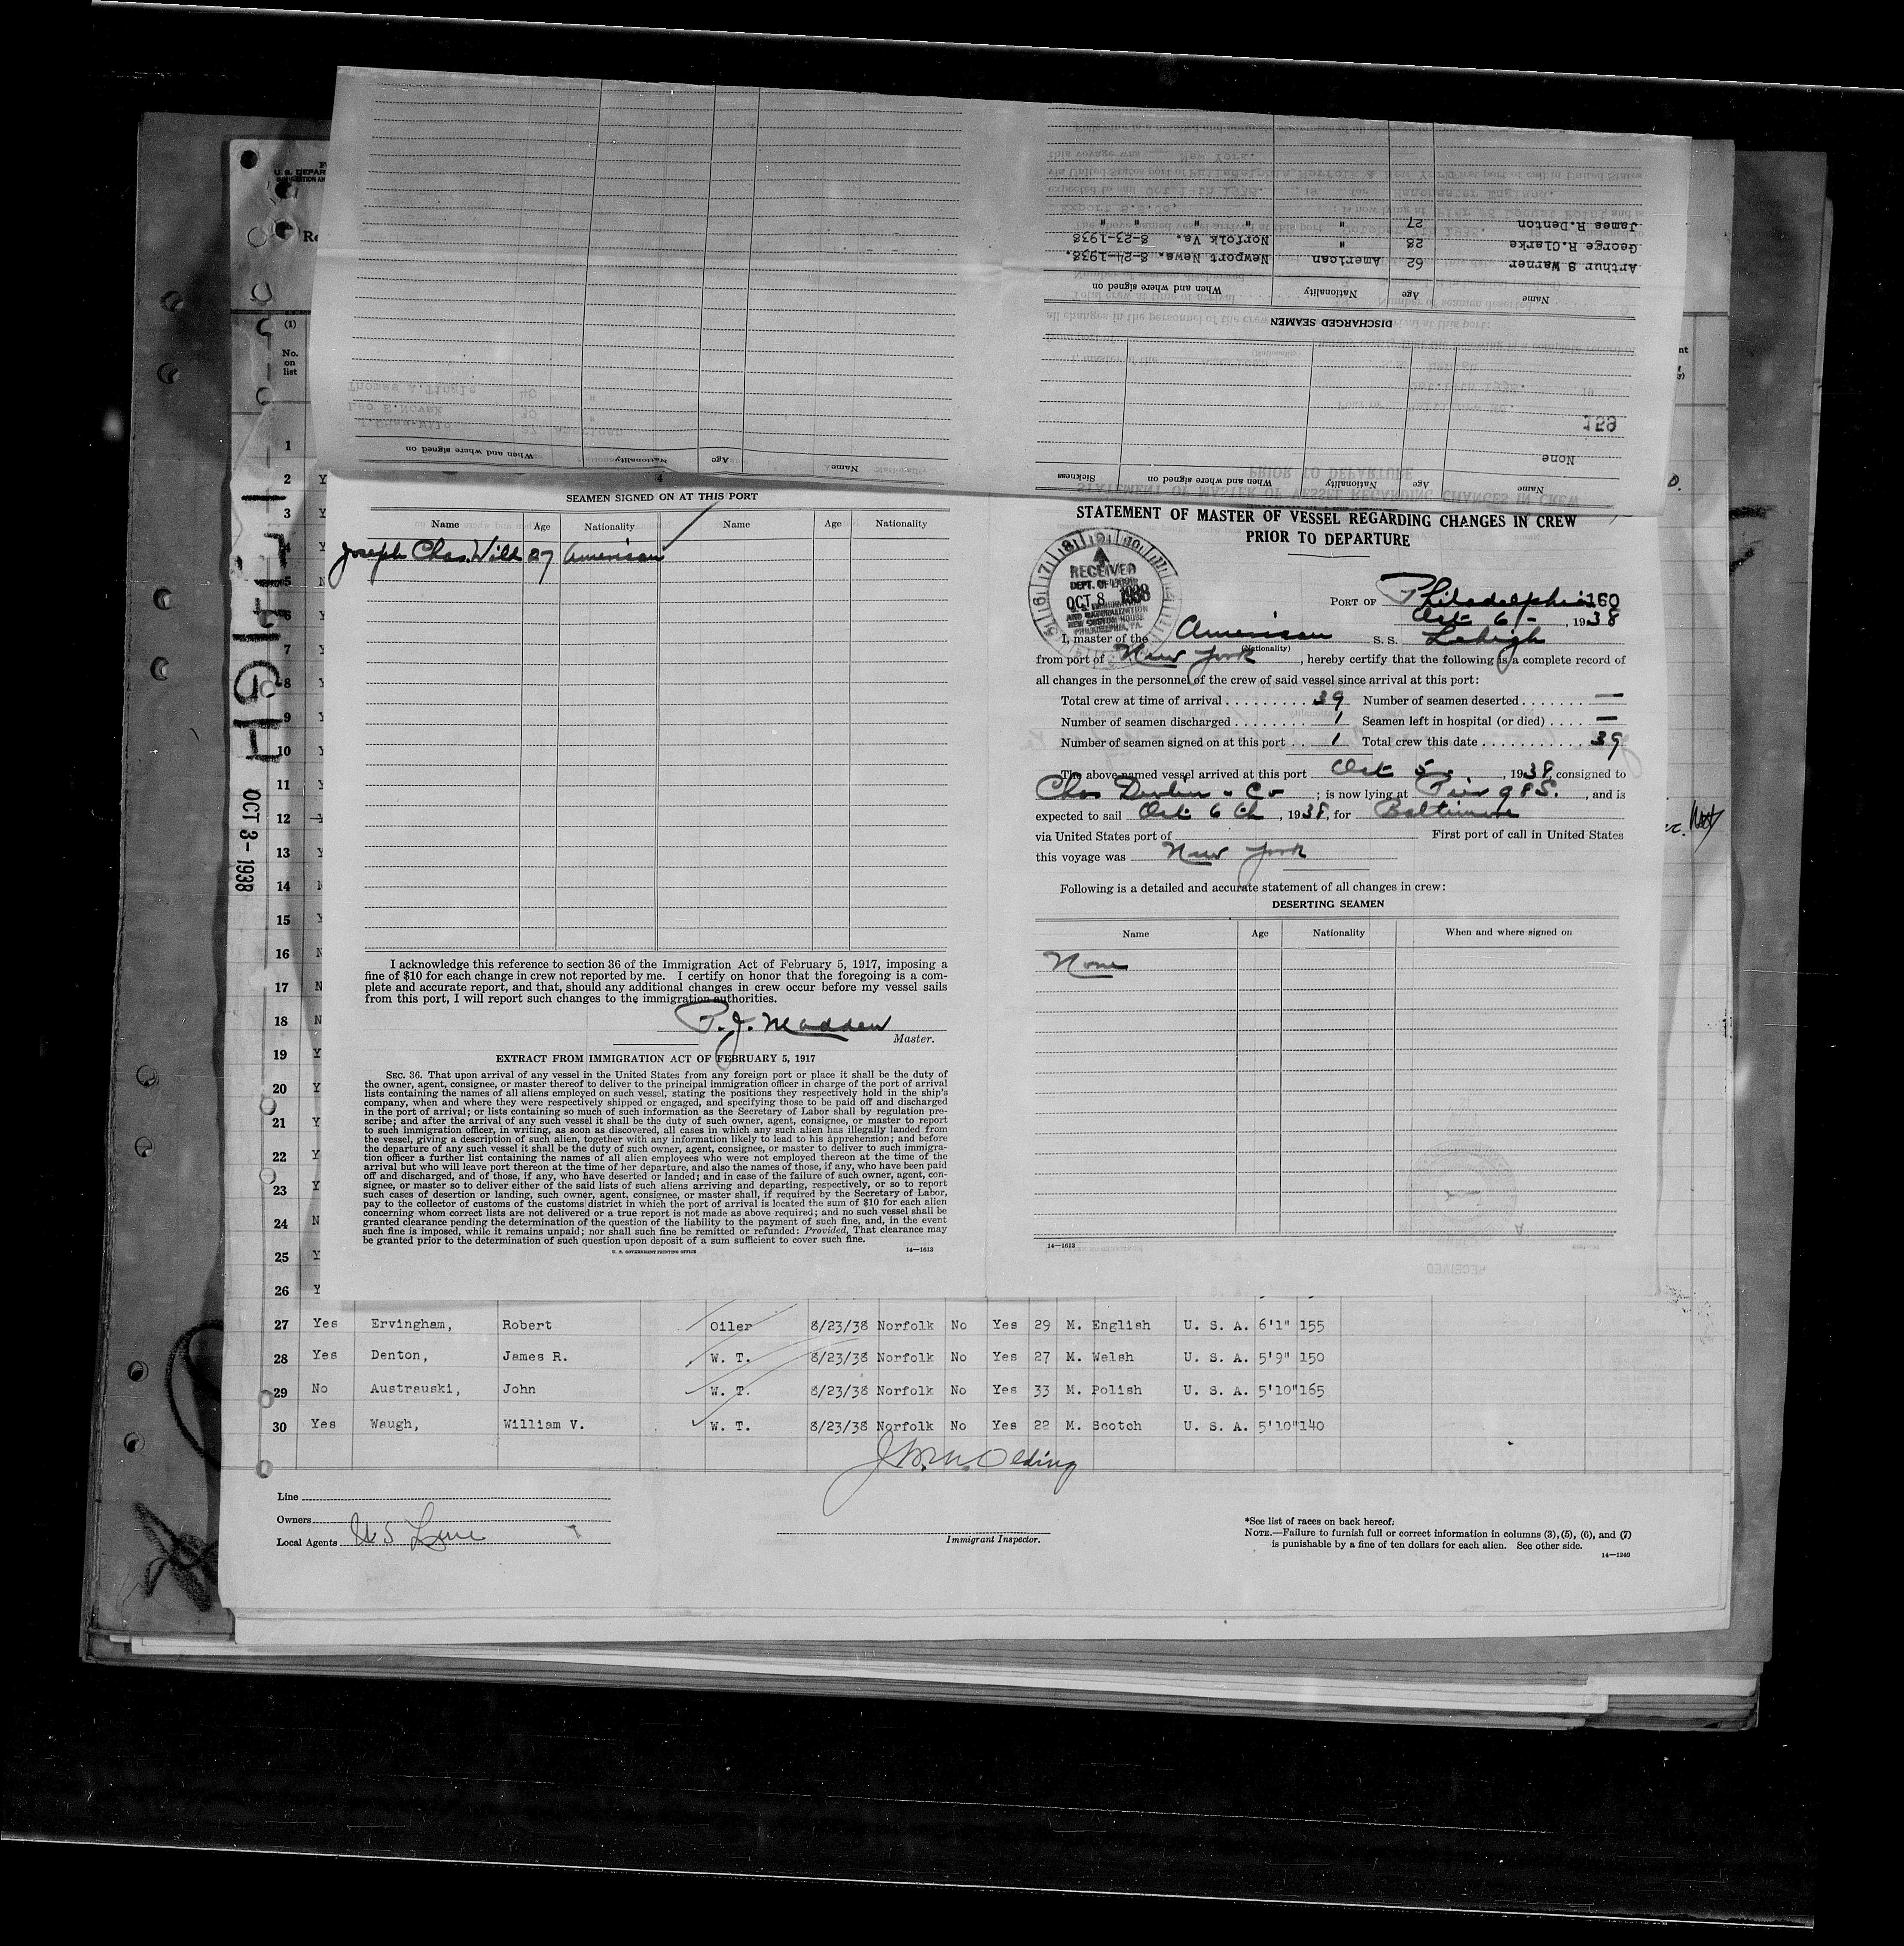 U. S. DEPAR
Re
(1)
No.
on
list
1
2 Y
3 Y
4 Y
5
6 Y
7 Y
8 Y
9 Y
10 Y
11 Y
12 Y
13 Y
14
15 Y
16 N
17 N
18 N
19 Y
20 Y
21 Y
22 Y
23 Y
24 N
25 Y
26 Y
OCT 3 - 1938
When and where signed on
Nationality
Age
Name
James R. Denton 27 " " " " "
George R. Clarke 28 " Norfolk Va. 8-23-1938
Arthur S Warner 62 American Newport News. 8-24-1938.
Name Age Nationality When and where signed on
DISCHARGED SEAMEN
159
None
Name Age Nationality When and where signed on Sickness
4
SEAMEN SIGNED ON AT THIS PORT
Name Age Nationality Name Age Nationality
Joseph Chas. Will 27 American
I acknowledge this reference to section 36 of the Immigration Act of February 5, 1917, imposing a
fine of $10 for each change in crew not reported by me. I certify on honor that the foregoing is a com-
plete and accurate report, and that, should any additional changes in crew occur before my vessel sails
from this port, I will report such changes to the immigration authorities.
P. J. Madden
Master.
EXTRACT FROM IMMIGRATION ACT OF FEBRUARY 5, 1917
SEC. 36. That upon arrival of any vessel in the United States from any foreign port or place it shall be the duty of
the owner, agent, consignee, or master thereof to deliver to the principal immigration officer in charge of the port of arrival
lists containing the names of all aliens employed on such vessel, stating the positions they respectively hold in the ship's
company, when and where they were respectively shipped or engaged, and specifying those to be paid off and discharged
in the port of arrival; or lists containing so much of such information as the Secretary of Labor shall by regulation pre-
scribe; and after the arrival of any such vessel it shall be the duty of such owner, agent, consignee, or master to report
to such immigration officer, in writing, as soon as discovered, all cases in which any such alien has illegally landed from
the vessel, giving a description of such alien, together with any information likely to lead to his apprehension; and before
the departure of any such vessel it shall be the duty of such owner, agent, consignee, or master to deliver to such immigra-
tion officer a further list containing the names of all alien employees who were not employed thereon at the time of the
arrival but who will leave port thereon at the time of her departure, and also the names of those, if any, who have been paid
off and discharged, and of those, if any, who have deserted or landed; and in case of the failure of such owner, agent, con-
signee, or master so to deliver either of the said lists of such aliens arriving and departing, respectively, or so to report
such cases of desertion or landing, such owner, agent, consignee, or master shall, if required by the Secretary of Labor,
pay to the collector of customs of the customs district in which the port of arrival is located the sum of $10 for each alien
concerning whom correct lists are not delivered or a true report is not made as above required; and no such vessel shall be
granted clearance pending the determination of the question of the liability to the payment of such fine, and, in the event
such fine is imposed, while it remains unpaid; nor shall such fine be remitted or refunded: Provided, That clearance may
be granted prior to the determination of such question upon deposit of a sum sufficient to cover such fine.
U. S. GOVERNMENT PRINTING OFFICE 14—1613
STATEMENT OF MASTER OF VESSEL REGARDING CHANGES IN CREW
PRIOR TO DEPARTURE
RECEIVED
DEPT. OF LABOR
OCT 8 1938
AND NATURALIZATION
NEW CUSTOM HOUSE
PHILADELPHIA, PA.
PORT OF Philadelphia 160
Oct 6/-, 1938
I, master of the American S. S. Lehigh
(Nationality)
from port of New York, hereby certify that the following is a complete record of
all changes in the personnel of the crew of said vessel since arrival at this port:
Total crew at time of arrival 39 Number of seamen deserted —
Number of seamen discharged 1 Seamen left in hospital (or died) —
Number of seamen signed on at this port 1 Total crew this date 39
The above-named vessel arrived at this port Oct 5, 1938, consigned to
Chas Devlin & Co; is now lying at Pier 98 S., and is
expected to sail Oct 6th, 1938, for Baltimore
via United States port of First port of call in United States
this voyage was New York
Following is a detailed and accurate statement of all changes in crew:
DESERTING SEAMEN
Name Age Nationality When and where signed on
None
14—1613
27 Yes Ervingham, Robert Oiler 8/23/38 Norfolk No Yes 29 M. English U. S. A. 6'1" 155
28 Yes Denton, James R. W. T. 8/23/38 Norfolk No Yes 27 M. Welsh U. S. A. 5'9" 150
29 No Austrauski, John W. T. 8/23/38 Norfolk No Yes 33 M. Polish U. S. A. 5'10" 165
30 Yes Waugh, William V. W. T. 8/23/38 Norfolk No Yes 22 M. Scotch U. S. A. 5'10" 140
Line
Owners
Local Agents U S Line
Immigrant Inspector.
*See list of races on back hereof.
NOTE.—Failure to furnish full or correct information in columns (3), (5), (6), and (7)
is punishable by a fine of ten dollars for each alien. See other side.
14—1240